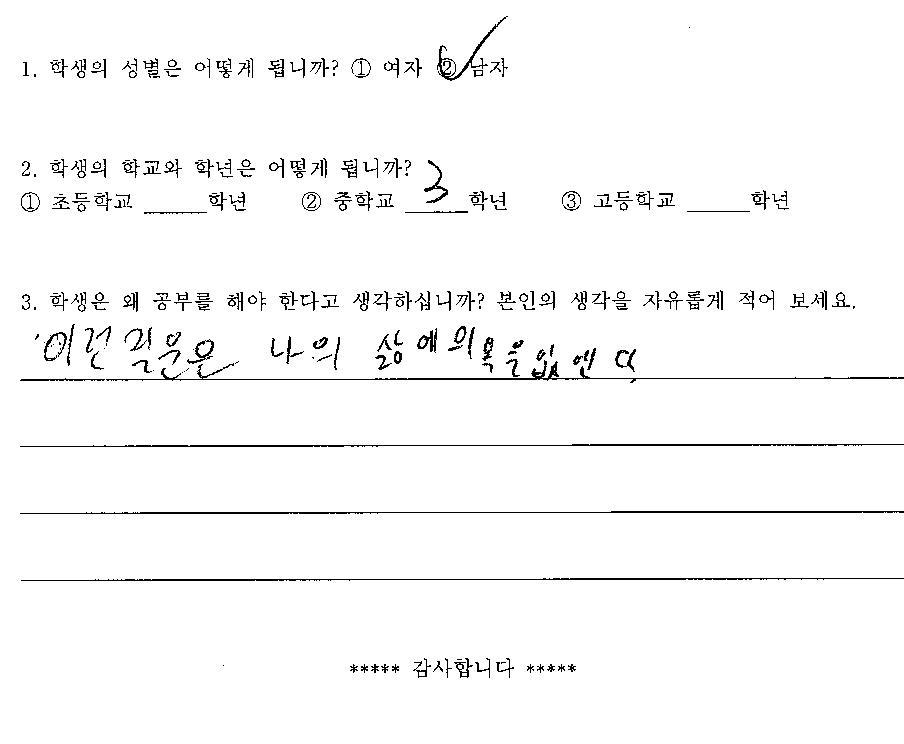 1. 학생의 성별은 어떻게 됩니까? ① 여자 ② 남자
2. 학생의 학교와 학년은 어떻게 됩니까?
① 초등학교 _____학년 ② 중학교 3학년 ③ 고등학교 _____학년
3. 학생은 왜 공부를 해야 한다고 생각하십니까? 본인의 생각을 자유롭게 적어 보세요.
이런 질문은 나의 삶에 의욕을 없앤다.
***** 감사합니다 *****